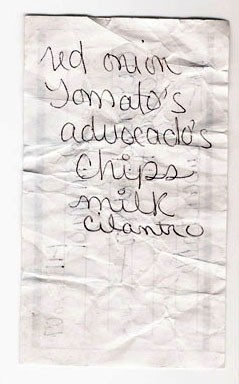 red onion
Tomato's
advocado's
chips
milk
cilantro